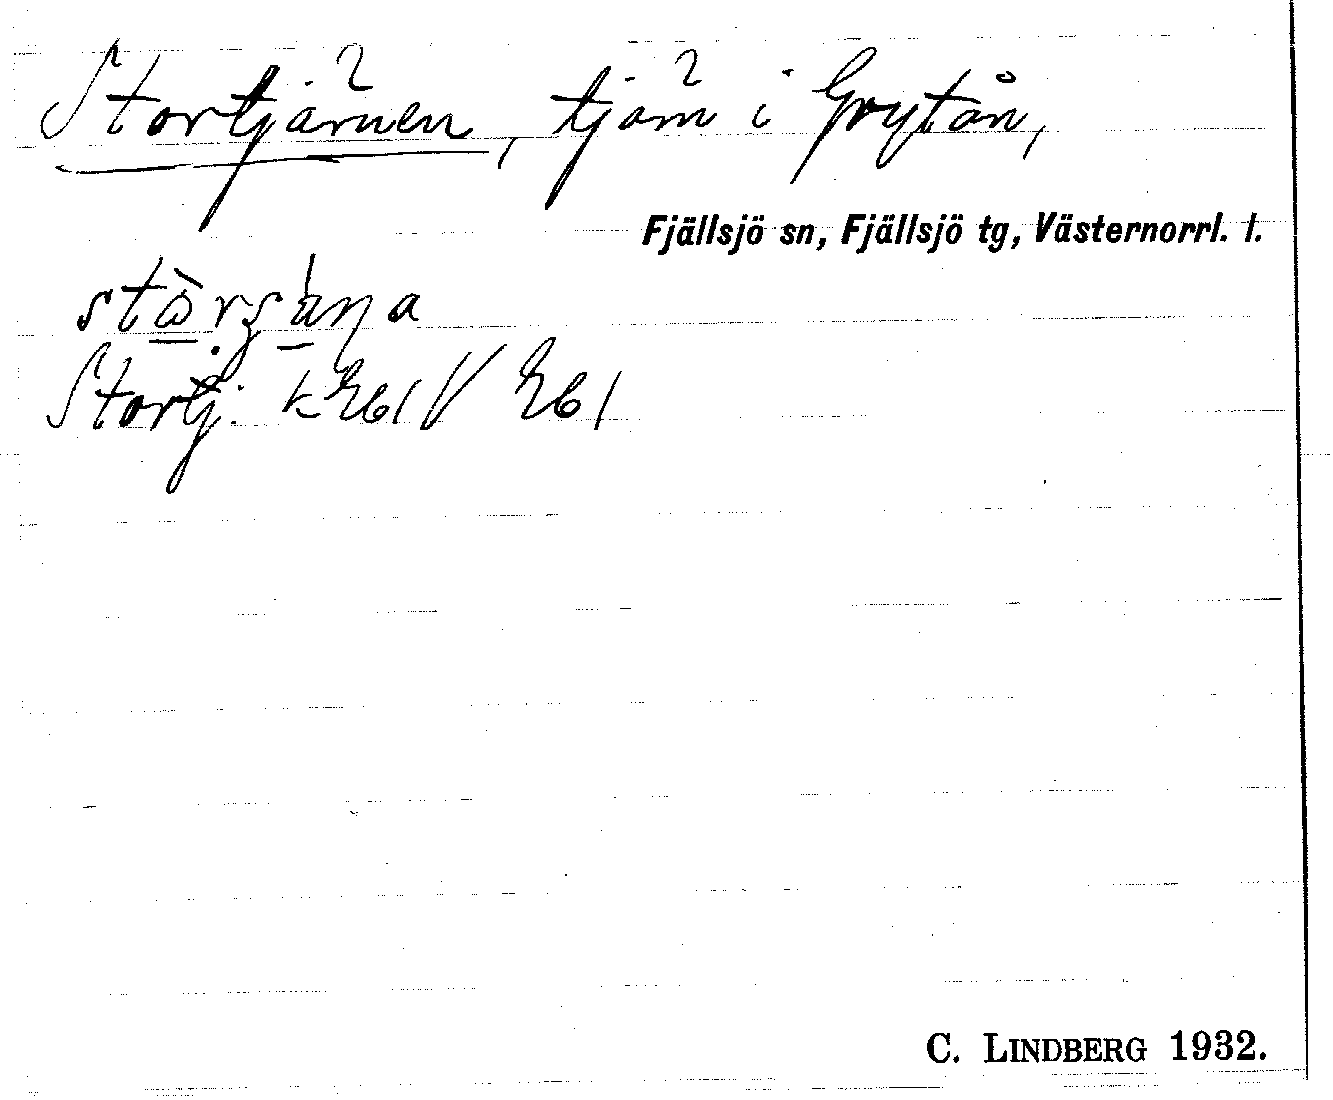 Stortjärnen, tjärn i Grytån,
Fjällsjö sn, Fjällsjö tg, Västernorrl. l.
Stortj.
C. LINDBERG 1932.